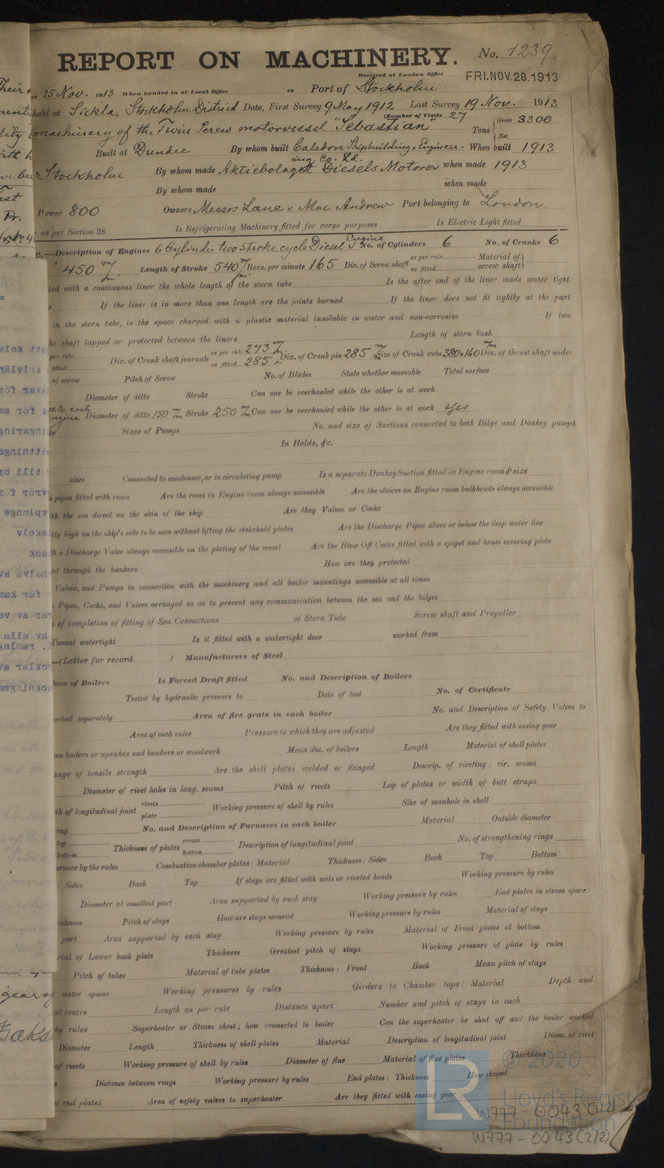 REPORT ON MACHINERY. No. 1239
Received at London Office FRI. NOV. 28. 1913
25 Nov. 1913 When handed in at Local Office Port of Stockholm
held at Sickla, Stockholm District Date, First Survey 9 May 1912 Last Survey 19 Nov. 1913
(Number of Visits 27
machinery of the Twin Screw motorvessel "Sebastian" Tons Gross 3300 Net
Built at Dundee By whom built Caledon Shipbuilding & Engineering Co. Ld. When built 1913
Stockholm By whom made Aktiebolaget Diesels Motorer when made 1913
By whom made when made
Power 800 Owners Messrs Lane & Mac Andrew Port belonging to London.
as per Section 28 Is Refrigerating Machinery fitted for cargo purposes Is Electric Light fitted
Description of Engines 6 Cylinder two stroke cycle Diesel Engine No. of Cylinders 6 No. of Cranks 6
450 m/m Length of Stroke 540 m/m Revs. per minute 165 Dia. of Screw shaft as per rule as fitted Material of screw shaft
ted with a continuous liner the whole length of the stern tube Is the after end of the liner made water tight
If the liner is in more than one length are the joints burned If the liner does not fit tightly at the part
in the stern tube, is the space charged with a plastic material insoluble in water and non-corrosive If two
he shaft lapped or protected between the liners Length of stern bush
per rule Dia. of Crank shaft journals as per rule 273 as fitted 285 Dia. of Crank pin 285 m/m Size of Crank webs 380×160 m/m Dia. of thrust shaft under
of screw Pitch of Screw No. of Blades State whether moveable Total surface
Diameter of ditto Stroke Can one be overhauled while the other is at work
engine Diameter of ditto 150 m/m Stroke 250 m/m Can one be overhauled while the other is at work Yes
Sizes of Pumps No. and size of Suctions connected to both Bilge and Donkey pumps
In Holds, &c.
sizes Connected to condenser, or to circulating pump Is a separate Donkey Suction fitted in Engine room & size
pipes fitted with roses Are the roses in Engine room always accessible Are the sluices on Engine room bulkheads always accessible
ith the sea direct on the skin of the ship Are they Valves or Cocks
tly high on the ship's side to be seen without lifting the stokehold plates Are the Discharge Pipes above or below the deep water line
h a Discharge Valve always accessible on the plating of the vessel Are the Blow Off Cocks fitted with a spigot and brass covering plate
ed through the bunkers How are they protected
Valves, and Pumps in connection with the machinery and all boiler mountings accessible at all times
Pipes, Cocks, and Valves arranged so as to prevent any communication between the sea and the bilges
of completion of fitting of Sea Connections of Stern Tube Screw shaft and Propeller
Tunnel watertight Is it fitted with a watertight door worked from
(Letter for record ) Manufacturers of Steel
ace of Boilers Is Forced Draft fitted No. and Description of Boilers
Tested by hydraulic pressure to Date of test No. of Certificate
orked separately Area of fire grate in each boiler No. and Description of Safety Valves to
Area of each valve Pressure to which they are adjusted Are they fitted with easing gear
en boilers or uptakes and bunkers or woodwork Mean dia. of boilers Length Material of shell plates
ange of tensile strength Are the shell plates welded or flanged Descrip. of riveting: cir. seams
Diameter of rivet holes in long. seams Pitch of rivets Lap of plates or width of butt straps
th of longitudinal joint rivets plate Working pressure of shell by rules Size of manhole in shell
ing No. and Description of Furnaces in each boiler Material Outside diameter
top bottom Thickness of plates crown bottom Description of longitudinal joint No. of strengthening rings
rnace by the rules Combustion chamber plates: Material Thickness: Sides Back Top Bottom
Sides Back Top If stays are fitted with nuts or riveted heads Working pressure by rules
Diameter at smallest part Area supported by each stay Working pressure by rules End plates in steam space:
ickness Pitch of stays How are stays secured Working pressure by rules Material of stays
part Area supported by each stay Working pressure by rules Material of Front plates at bottom
rial of Lower back plate Thickness Greatest pitch of stays Working pressure of plate by rules
Pitch of tubes Material of tube plates Thickness: Front Back Mean pitch of stays
water spaces Working pressures by rules Girders to Chamber tops: Material Depth and
at centre Length as per rule Distance apart Number and pitch of stays in each
by rules Superheater or Steam chest; how connected to boiler Can the superheater be shut off and the boiler worked
Diameter Length Thickness of shell plates Material Description of longitudinal joint Diam. of rivet
of rivets Working pressure of shell by rules Diameter of flue Material of flue plates Thickness
Distance between rings Working pressure by rules End plates: Thickness How stayed
of end plates Area of safety valves to superheater Are they fitted with easing gear
LR © 2020
Lloyd's Register
Foundation
W777-0043(1/2)
W777-0043(2/2)